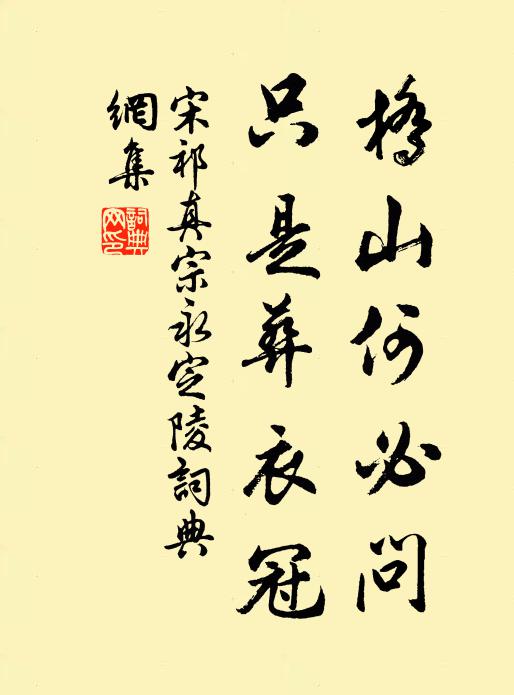 橋山何必問
只是葬衣冠
宋祁真宗永定陵詞典
網集
詞典網印